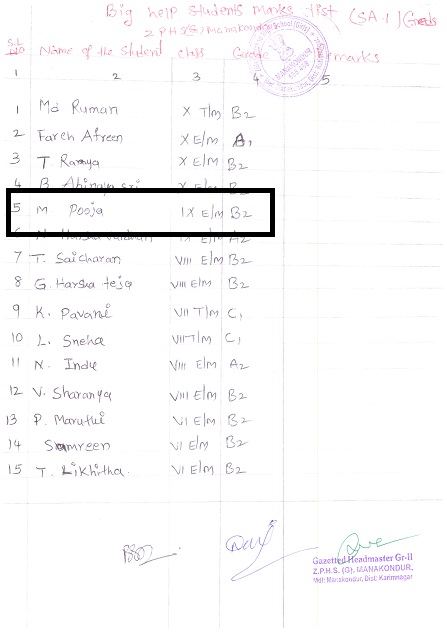 Big help students marks list (SA-1) Grads
Z P H S (G) Manakondur
S.L NO Name of the Student class Grade Remarks
1 2 3 4 5
1 Md Ruman X T/m B2
2 Fareh Afreen X E/m A1
3 T. Ramya X E/m B2
4 B. Abinaya sri X E/m B2
5 M Pooja IX E/m B2
6 IX E/m A2
7 T. Saicharan VIII E/m B2
8 G. Harsha teja VIII E/m B2
9 K. Pavani VII T/m C1
10 L. Sneha VII T/m C1
11 N. Indu VIII E/m A2
12 V. Sharanya VIII E/m B2
13 P. Maruthi VI E/m B2
14 Samreen VI E/m B2
15 T. Likhitha. VI E/m B2
Gazetted Headmaster Gr-II
Z.P.H.S. (G). MANAKONDUR,
Mdl: Manakondur, Dist: Karimnagar